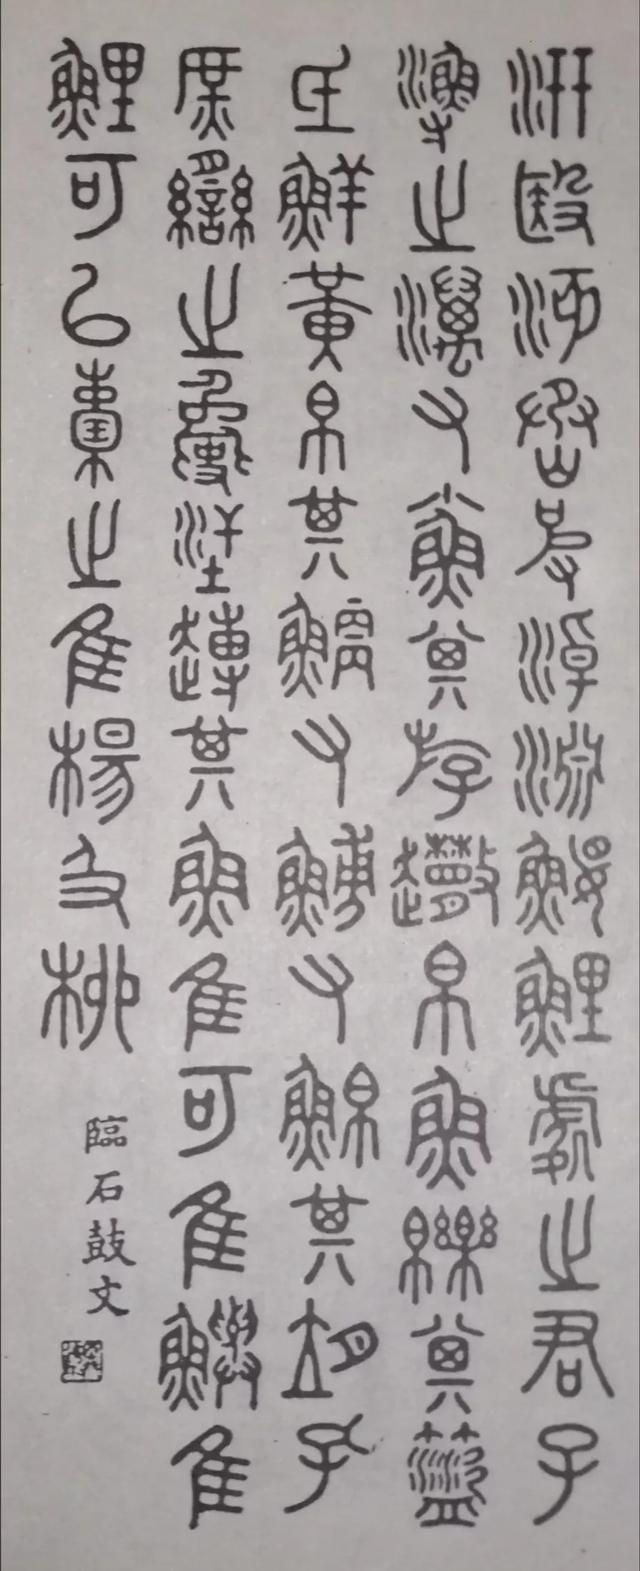 汧殹沔丞皮淖淵鰋鯉處之君子
漁之澫又小魚其斿帛魚皪其
氐鮮黃帛其鯾又鱄又鮊其孔
庶臠之其魚隹可隹鱮隹
鯉可以橐之隹楊及柳
臨石鼓文